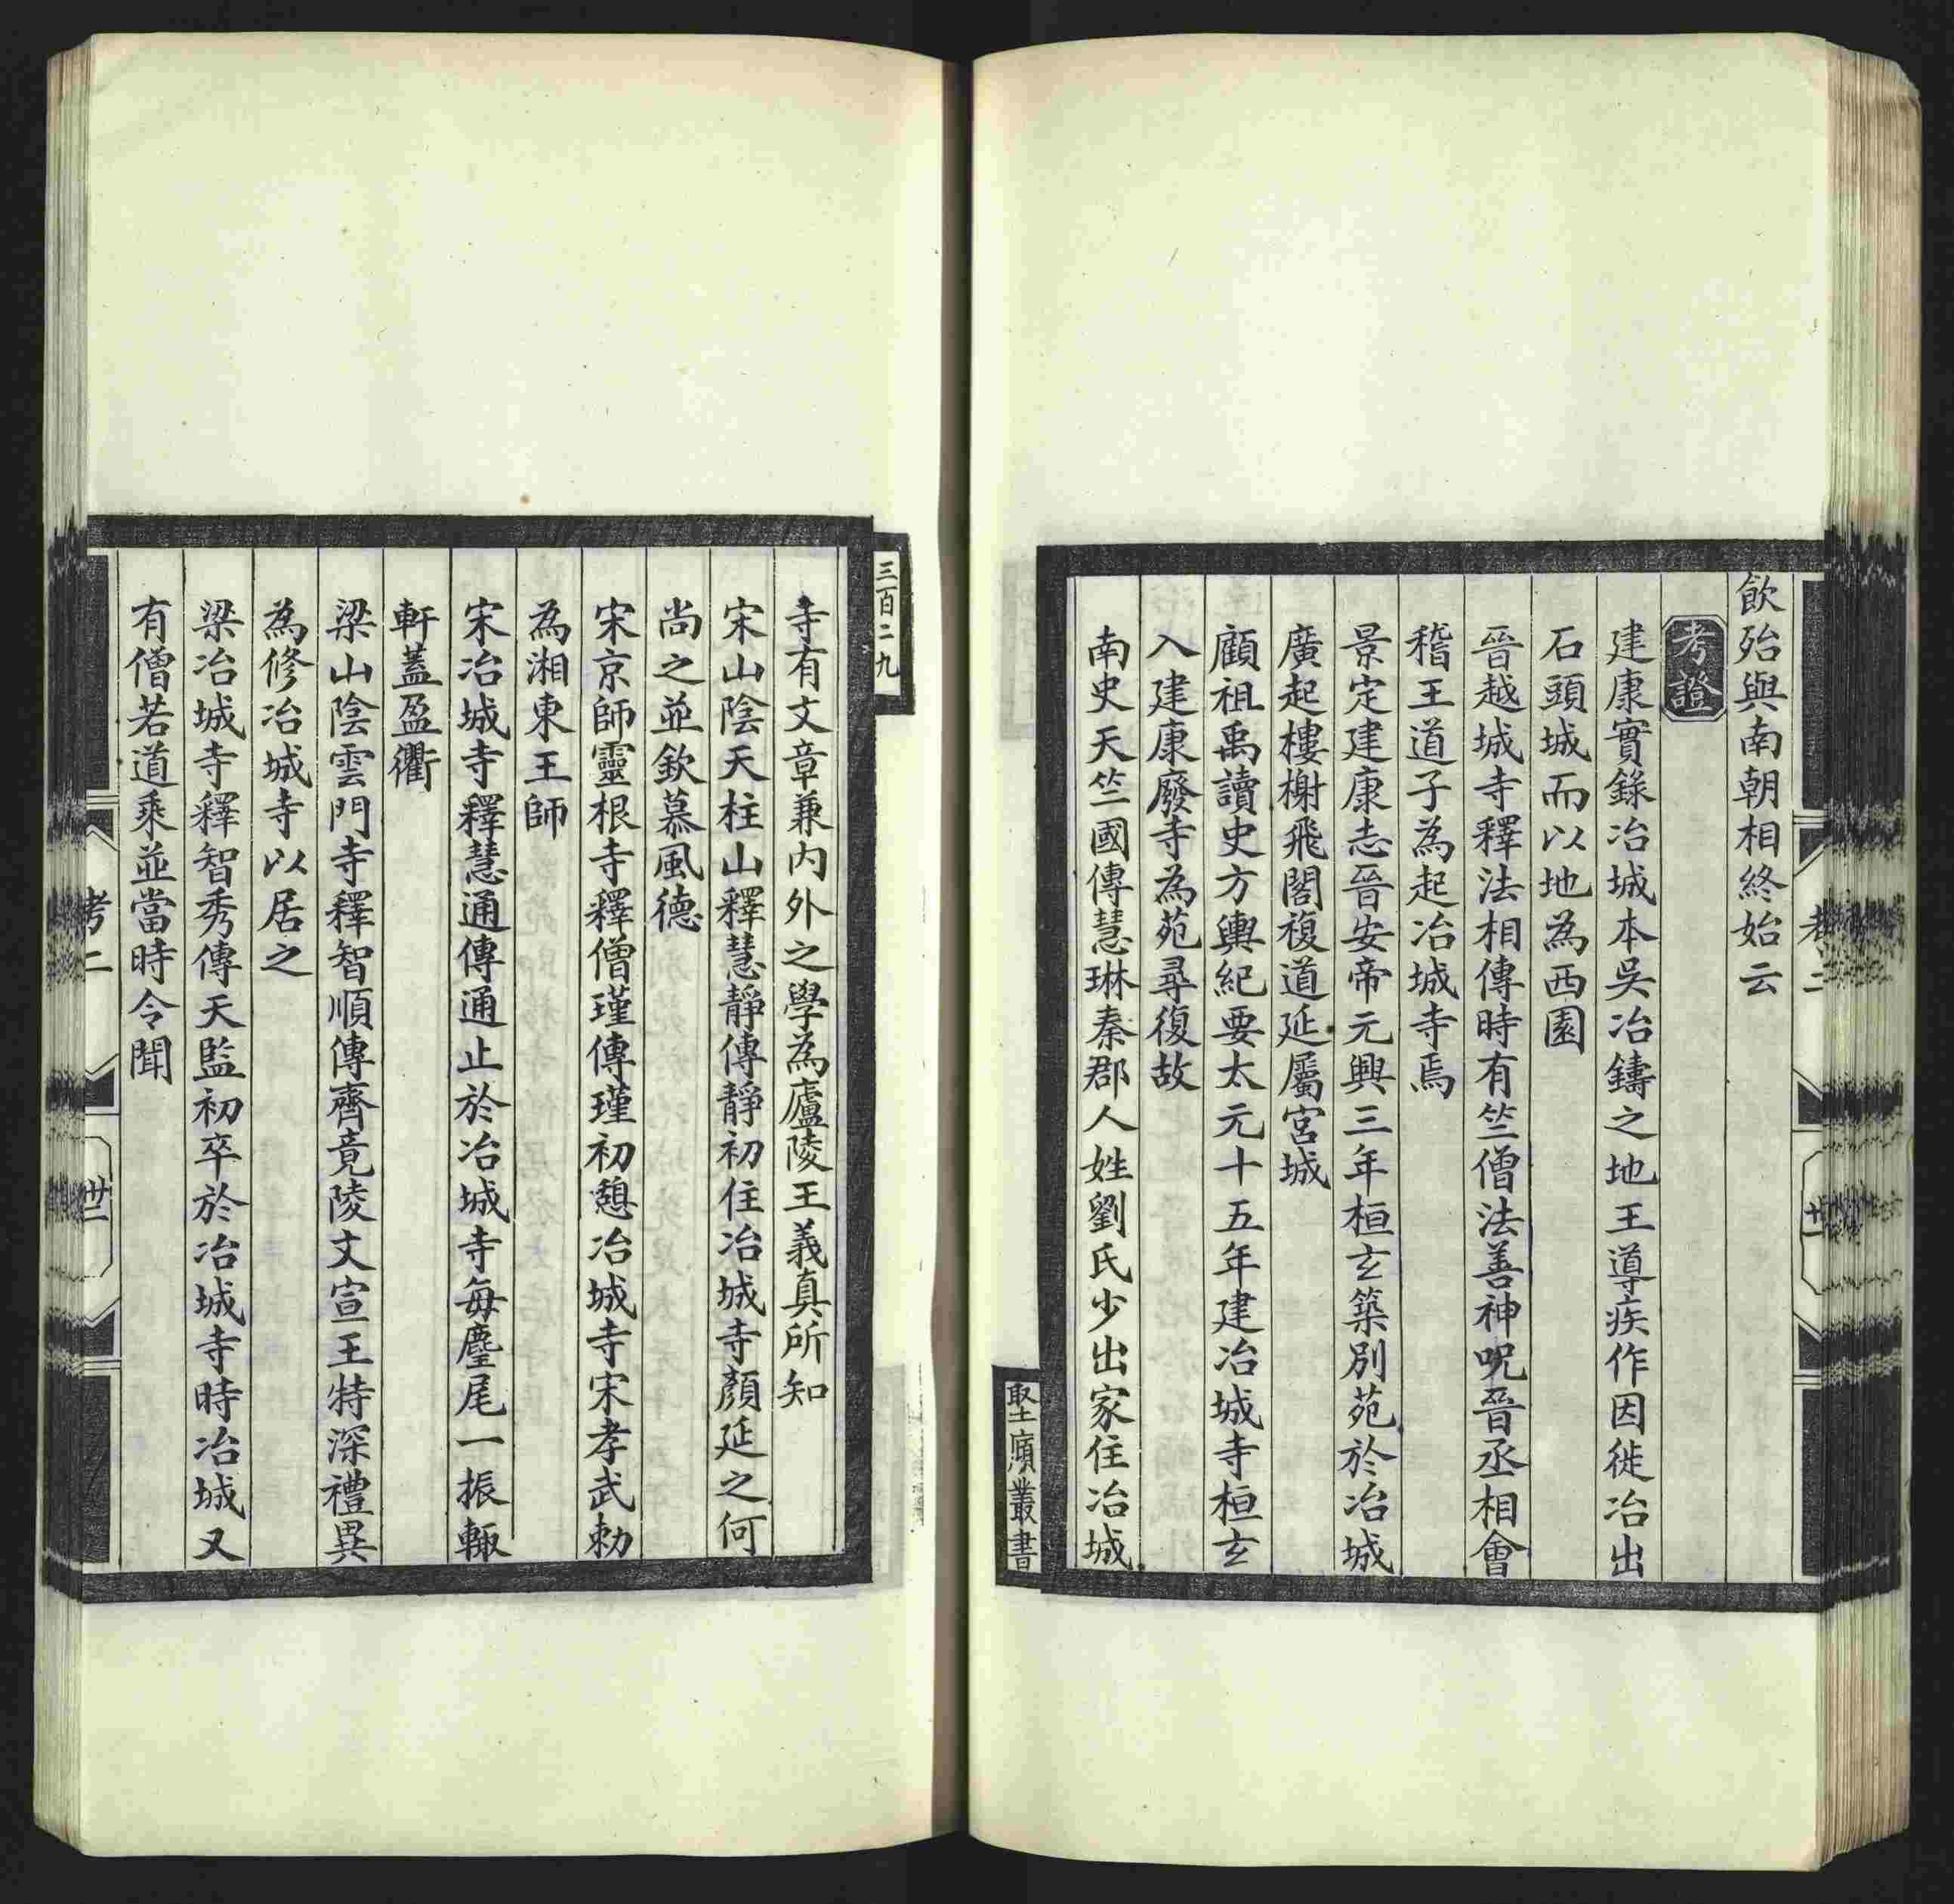 飲殆與南朝相終始云
考證
建康實錄冶城本吳冶鑄之地王導疾作因徙冶出
石頭城而以地為西園
晉越城寺釋法相傳時有竺僧法善神呪晉丞相會
稽王道子為起冶城寺焉
景定建康志晉安帝元興三年桓玄築別苑於冶城
廣起樓榭飛閣複道延屬宮城
顧祖禹讀史方輿紀要太元十五年建冶城寺桓玄
入建康廢寺為苑尋復故
南史天竺國傳慧琳秦郡人姓劉氏少出家住冶城
堅瓠叢書
三百二九
寺有文章兼內外之學為廬陵王義真所知
宋山陰天柱山釋慧靜傳靜初住冶城寺顏延之何
尚之並欽慕風德
宋京師靈根寺釋僧瑾傳瑾初憩冶城寺宋孝武勅
為湘東王師
宋冶城寺釋慧通傳通止於冶城寺每麈尾一振輒
軒蓋盈衢
梁山陰雲門寺釋智順傳齊竟陵文宣王特深禮異
為修冶城寺以居之
梁冶城寺釋智秀傳天監初卒於冶城寺時冶城又
有僧若道乘並當時令聞
考二